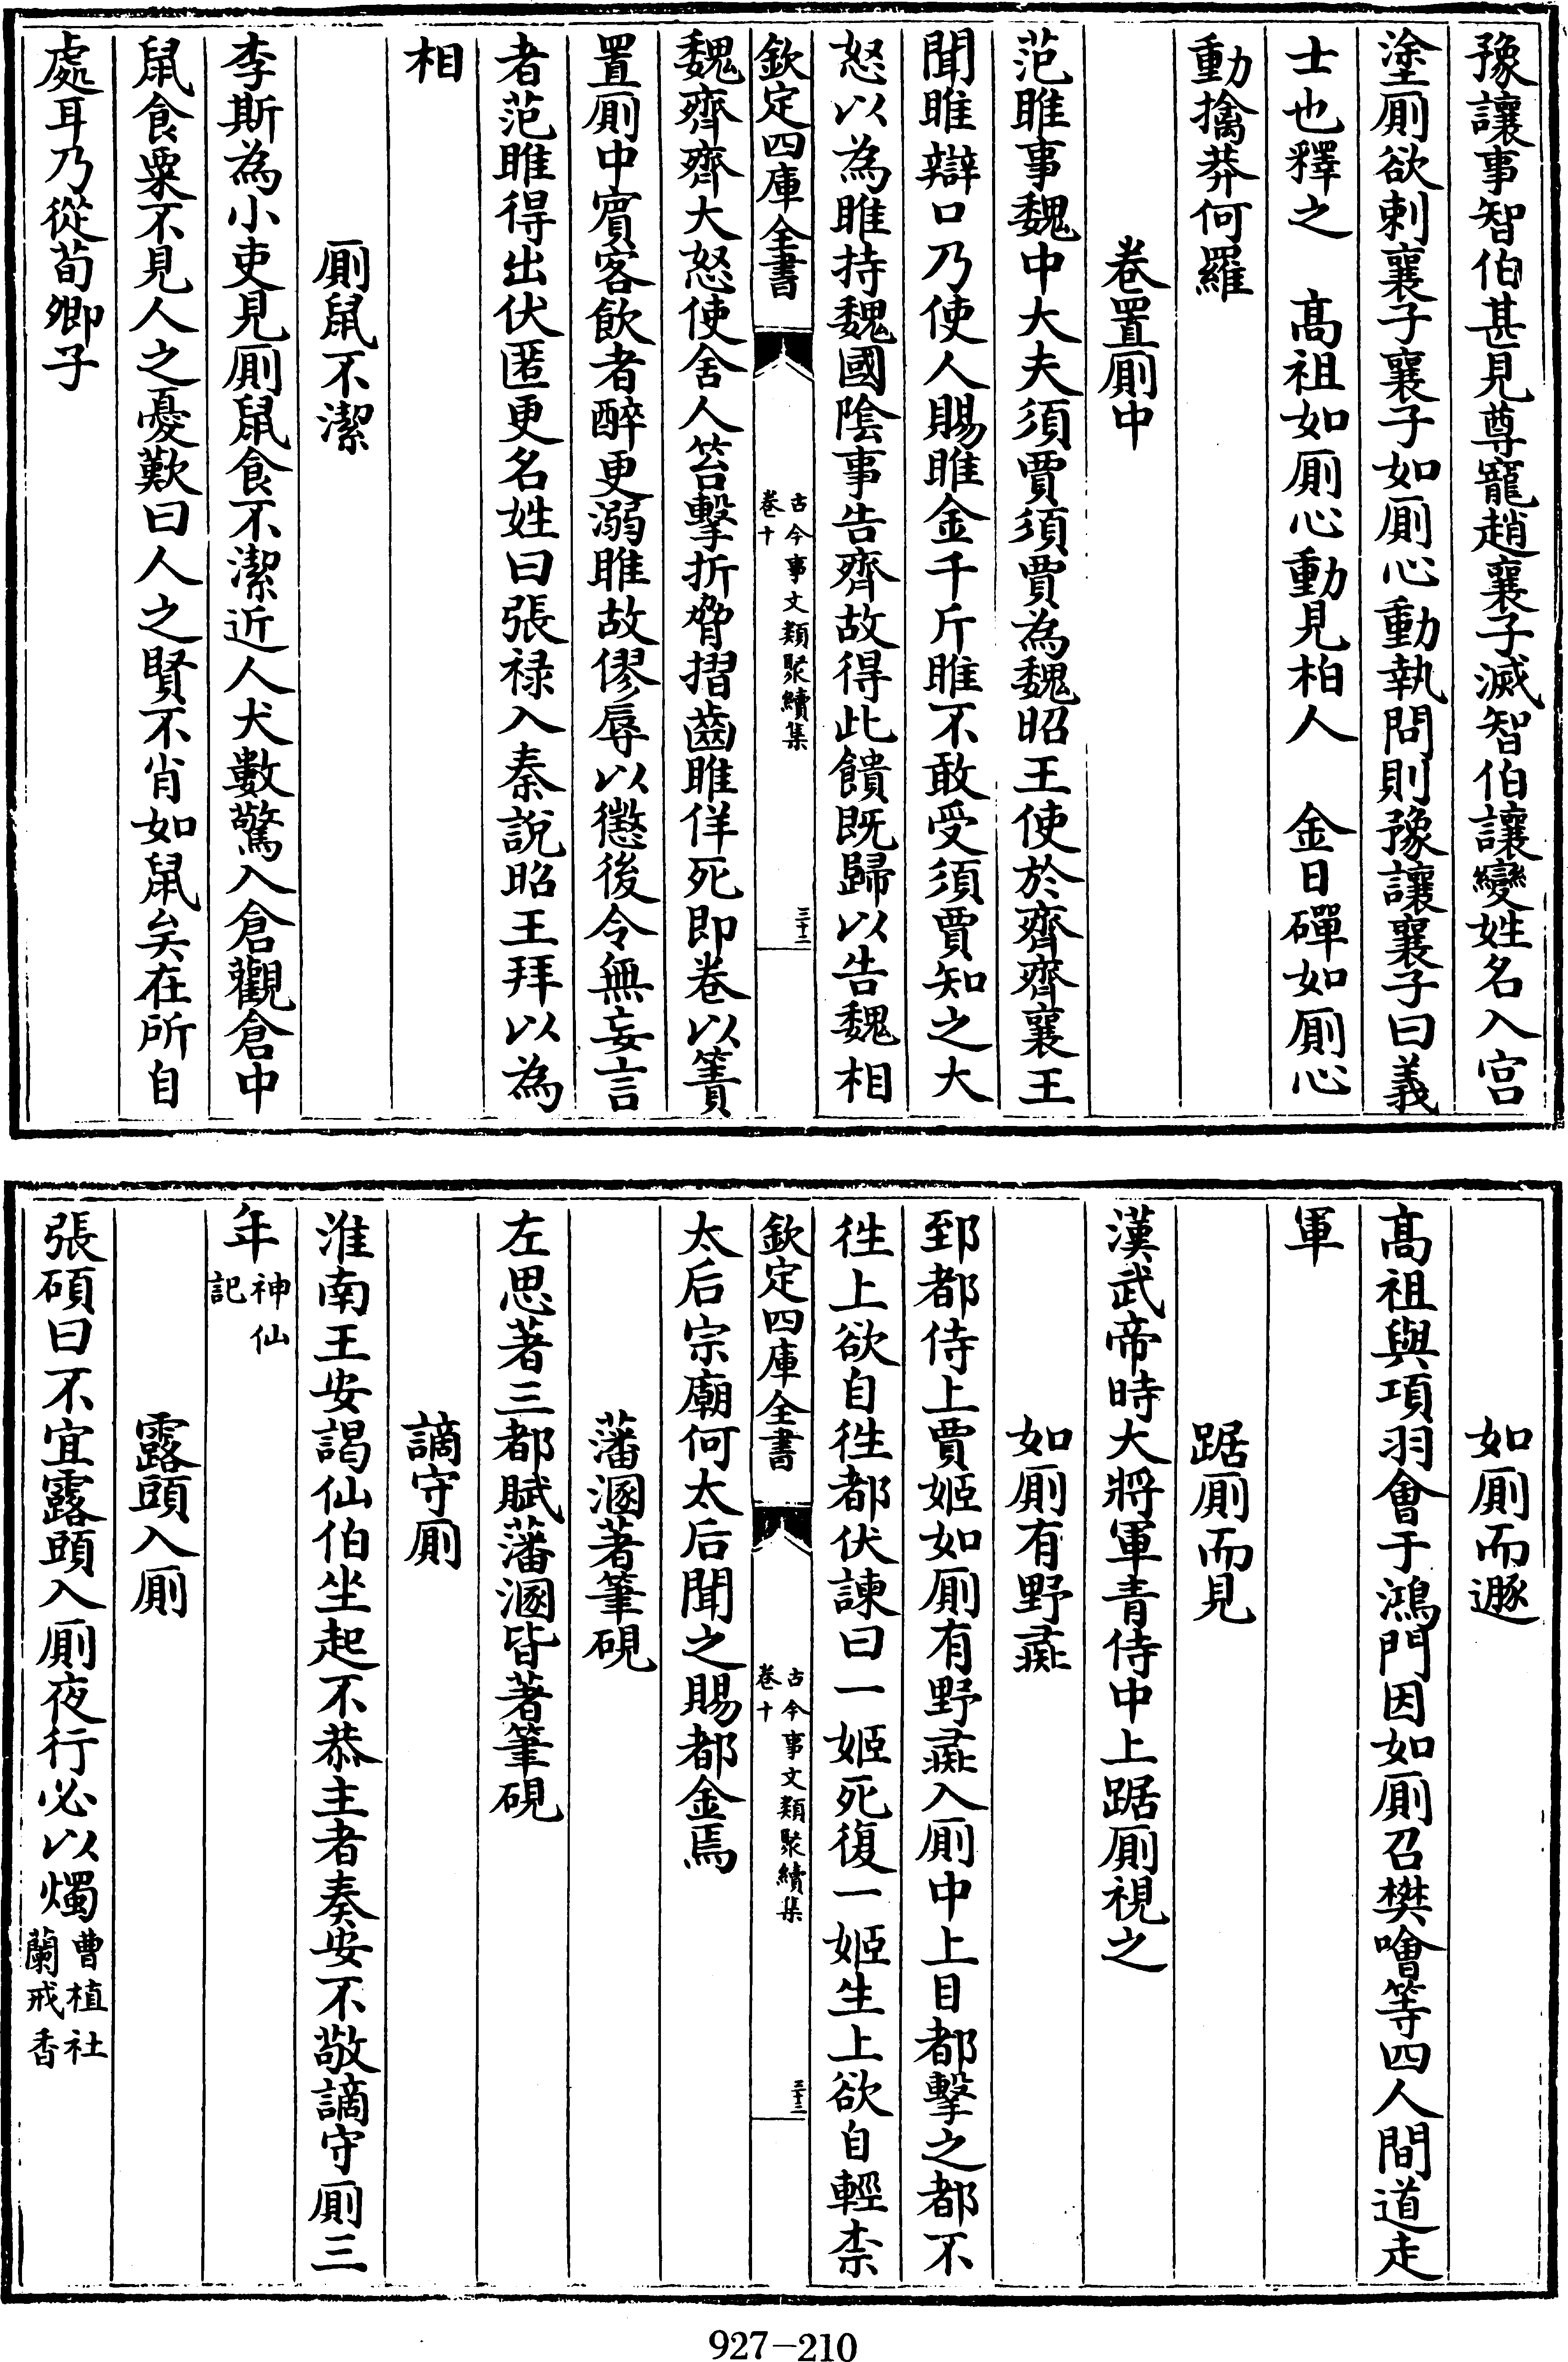 豫讓事智伯甚見尊寵趙襄子滅智伯讓變姓名入宫
塗厠欲刺襄子襄子如厠心動執問則豫讓襄子曰義
士也釋之　髙祖如厠心動見柏人　金日磾如厠心
動擒莽何羅
卷置厠中
范睢事魏中大夫須賈須賈為魏昭王使於齊齊襄王
聞睢辯口乃使人賜睢金千斤睢不敢受須賈知之大
怒以為睢持魏國陰事告齊故得此饋既歸以告魏相
欽定四庫全書
古今事文類聚續集
卷十
三十二
魏齊齊大怒使舍人笞擊折脅摺齒睢佯死即卷以簀
置厠中賓客飲者醉更溺睢故僇辱以懲後令無妄言
者范睢得出伏匿更名姓曰張禄入秦說昭王拜以為
相
厠鼠不潔
李斯為小吏見厠鼠食不潔近人犬數驚入倉觀倉中
鼠食粟不見人之憂歎曰人之賢不肖如鼠矣在所自
處耳乃從荀卿子
如厠而遯
髙祖與項羽會于鴻門因如厠召樊噲等四人間道走
軍
踞厠而見
漢武帝時大將軍青侍中上踞厠視之
如厠有野彘
郅都侍上賈姬如厠有野彘入厠中上目都擊之都不
徃上欲自徃都伏諫曰一姬死復一姬生上欲自輕柰
欽定四庫全書
古今事文類聚續集
卷十
三十三
太后宗廟何太后聞之賜都金焉
藩溷著筆硯
左思著三都賦藩溷皆著筆硯
謫守厠
淮南王安謁仙伯坐起不恭主者奏安不敬謫守厠三
年神仙記
露頭入厠
張碩曰不宜露頭入厠夜行必以燭曹植社蘭戒香
927-210